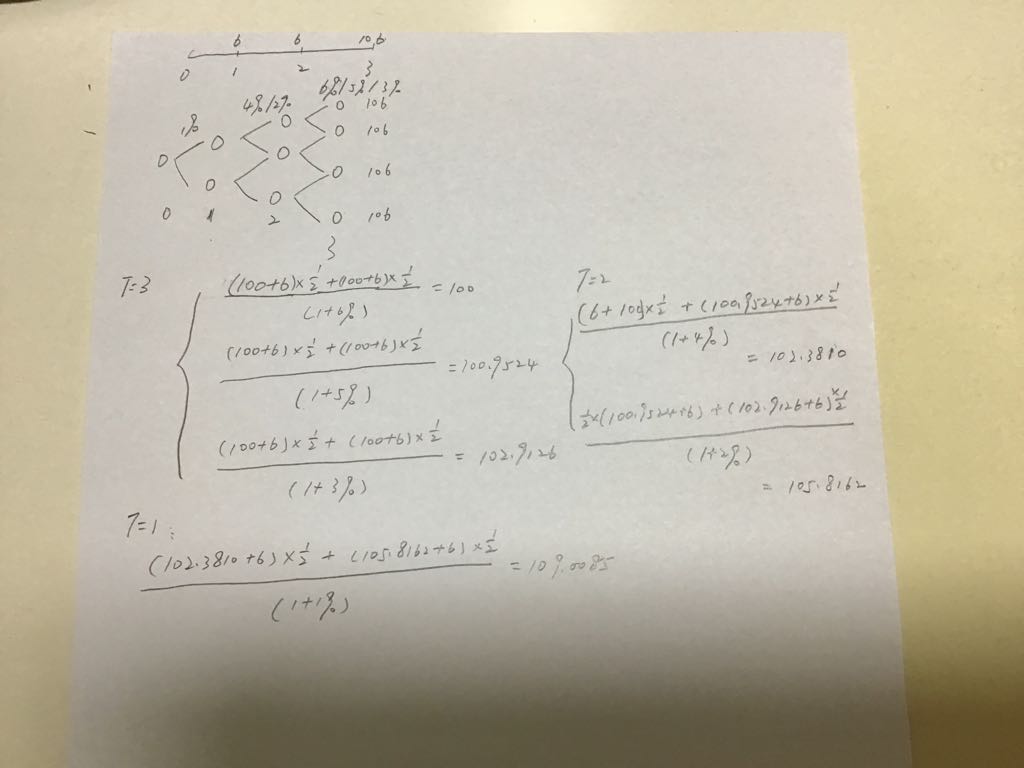 6 6 106
0 1 2 3
6%/5%/3%
4%/2%
1%
0 0 0 0 106
0 0 0 106
0 0 106
0 1 2 0 106
3
T=3
(100+6)×1/2 + (100+6)×1/2 / (1+6%) = 100
(100+6)×1/2 + (100+6)×1/2 / (1+5%) = 100.9524
(100+6)×1/2 + (100+6)×1/2 / (1+3%) = 102.9126
T=2
(6+100)×1/2 + (100.9524+6)×1/2 / (1+4%)
= 102.3810
1/2×(100.9524+6) + (102.9126+6)×1/2 / (1+2%)
= 105.8162
T=1:
(102.3810+6)×1/2 + (105.8162+6)×1/2 / (1+1%) = 109.0085